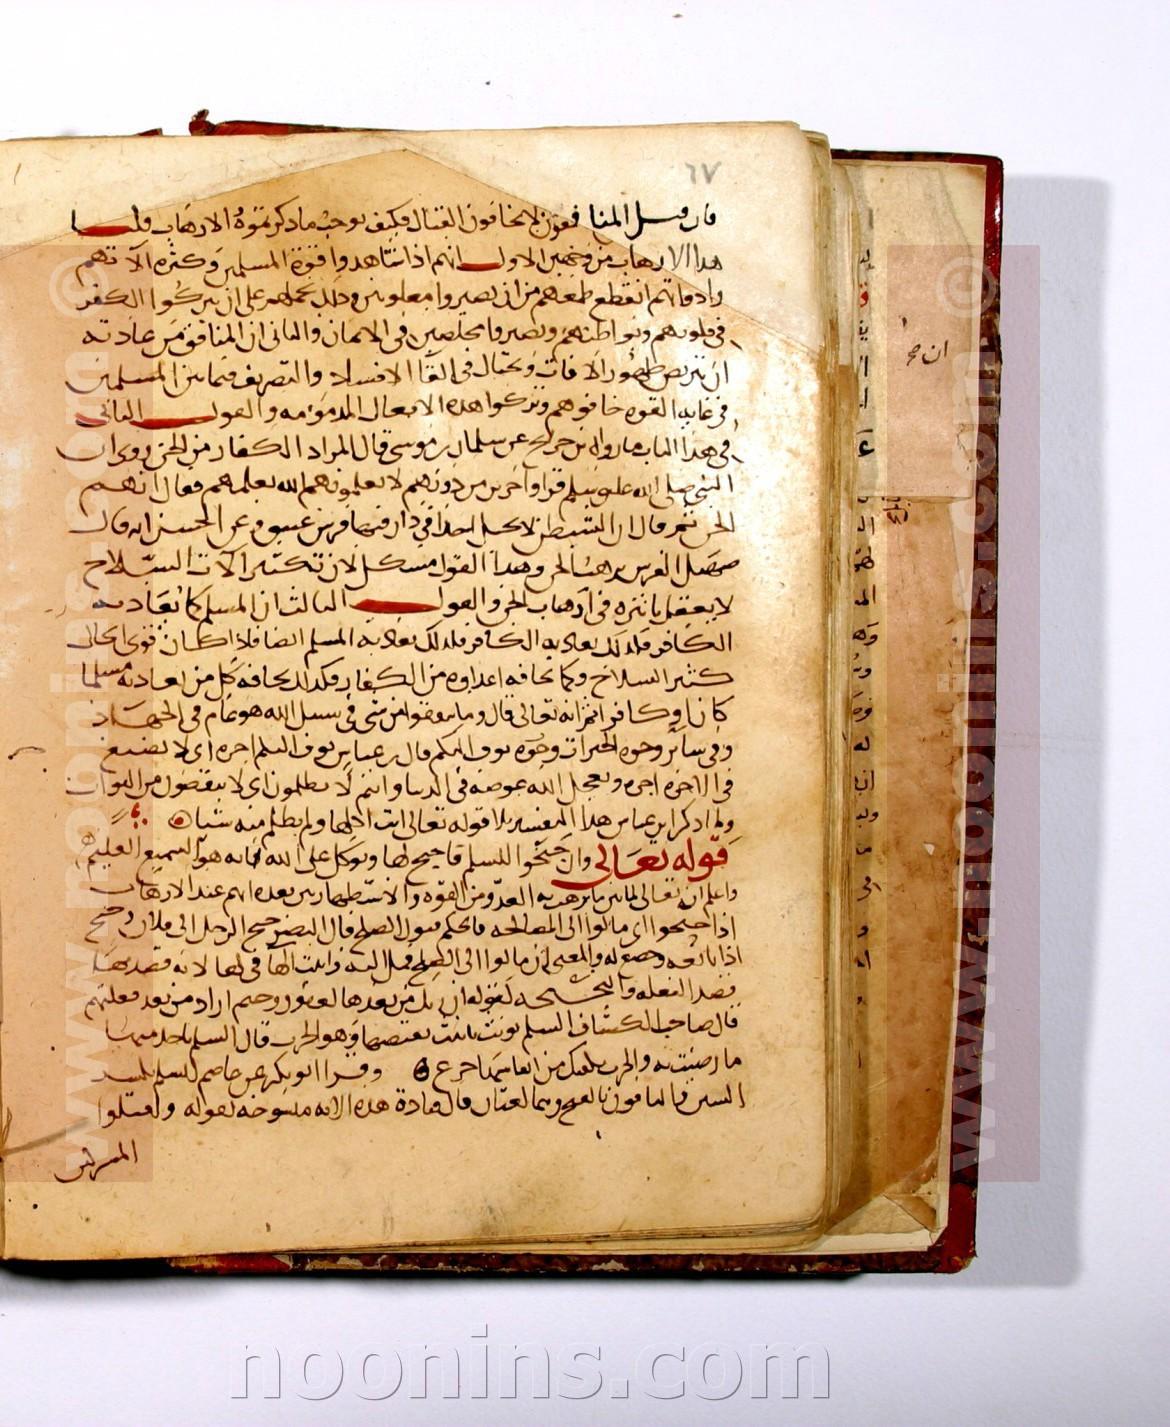 ٦٧
فان قيل المنافقون لا يخافون القتال فكيف يوجب ما ذكرتموه الارهاب قلنا
هذا الارهاب من وجهين الاول انهم اذا شاهدوا قوة المسلمين وكثرة آلاتهم
وادواتهم انقطع طمعهم من ان يصيروا مغلوبين وذلك يحملهم على ان يتركوا الكفر
في قلوبهم وبواطنهم ويصيروا مخلصين في الايمان والثاني ان المنافق من عادته
ان يتربص ظهور الآفات ويحتال في القاء الافساد والتفريق فيما بين المسلمين
في غاية القوة خافوهم وتركوا هذه الافعال المذمومة والقول الثاني
في هذا الباب ما رواه ابن جريج عن سلمان بن موسى قال المراد الكفار من الجن روى ان
النبي صلى الله عليه وسلم قرا وآخرين من دونهم لا تعلمونهم الله يعلمهم فقال انهم
الجن ثم قال ان الشيطان لا يخبل احدا في دار فيها فرس عتيق وعن الحسن انه قال
صهيل الفرس يرهب الجن وهذا القول مشكل لان تكثير آلات السلاح
لا يعقل تاثيره في ارهاب الجن والقول الثالث ان المسلم كما يعاديه
الكافر فكذلك يعاديه المسلم ايضا فاذا كان قوي الحال
كثير السلاح وكما يخافه اعداوه من الكفار فكذلك يخافه كل من يعاديه مسلما
كان او كافرا ثم انه تعالى قال وما تنفقوا من شي في سبيل الله هو عام في الجهاد
وفي سائر وجوه الخيرات وجوه يوف اليكم قال بن عباس يوف اليكم اجره اي لا يضيع
في الآخرة اجره ويعجل الله عوضه في الدنيا وانتم لا تظلمون اي لا ينقصون من الثواب
ولما ذكر ابن عباس هذا التفسير تلا قوله تعالى اتت اكلها ولم تظلم منه شيئا
قوله تعالى وان جنحوا للسلم فاجنح لها وتوكل على الله انه هو السميع العليم
واعلم انه تعالى لما بين ما يرهب به العدو من القوة والاستظهار بين بعده انهم عند الارهاب
اذا جنحوا اي مالوا الى المصالحة فالحكم قبول الصلح قال النضر جنح الرجل الى فلان وجنح
اذا تابعه وخضع له والمعنى ان مالوا الى الصلح فمل اليه وانث الها في لها لانه قصد بها
قصد الفعلة والجنحة كقوله ان ربك من بعدها لغفور رحيم اراد من بعد فعلتهم
قال صاحب الكشاف السلم تونث تانيث نقيضها وهو الحرب قال السلم تاخذ منها
ما رضيت به والحرب يكفيك من انفاسها جرع وقرا ابو بكر عن عاصم للسلم بكسر
السين والباقون بالفتح وهما لغتان قال قتادة هذه الآية منسوخة بقوله واقتلوا
المشركين
ان صح
www.noonins.com©
www.noonins.com©
noonins.com